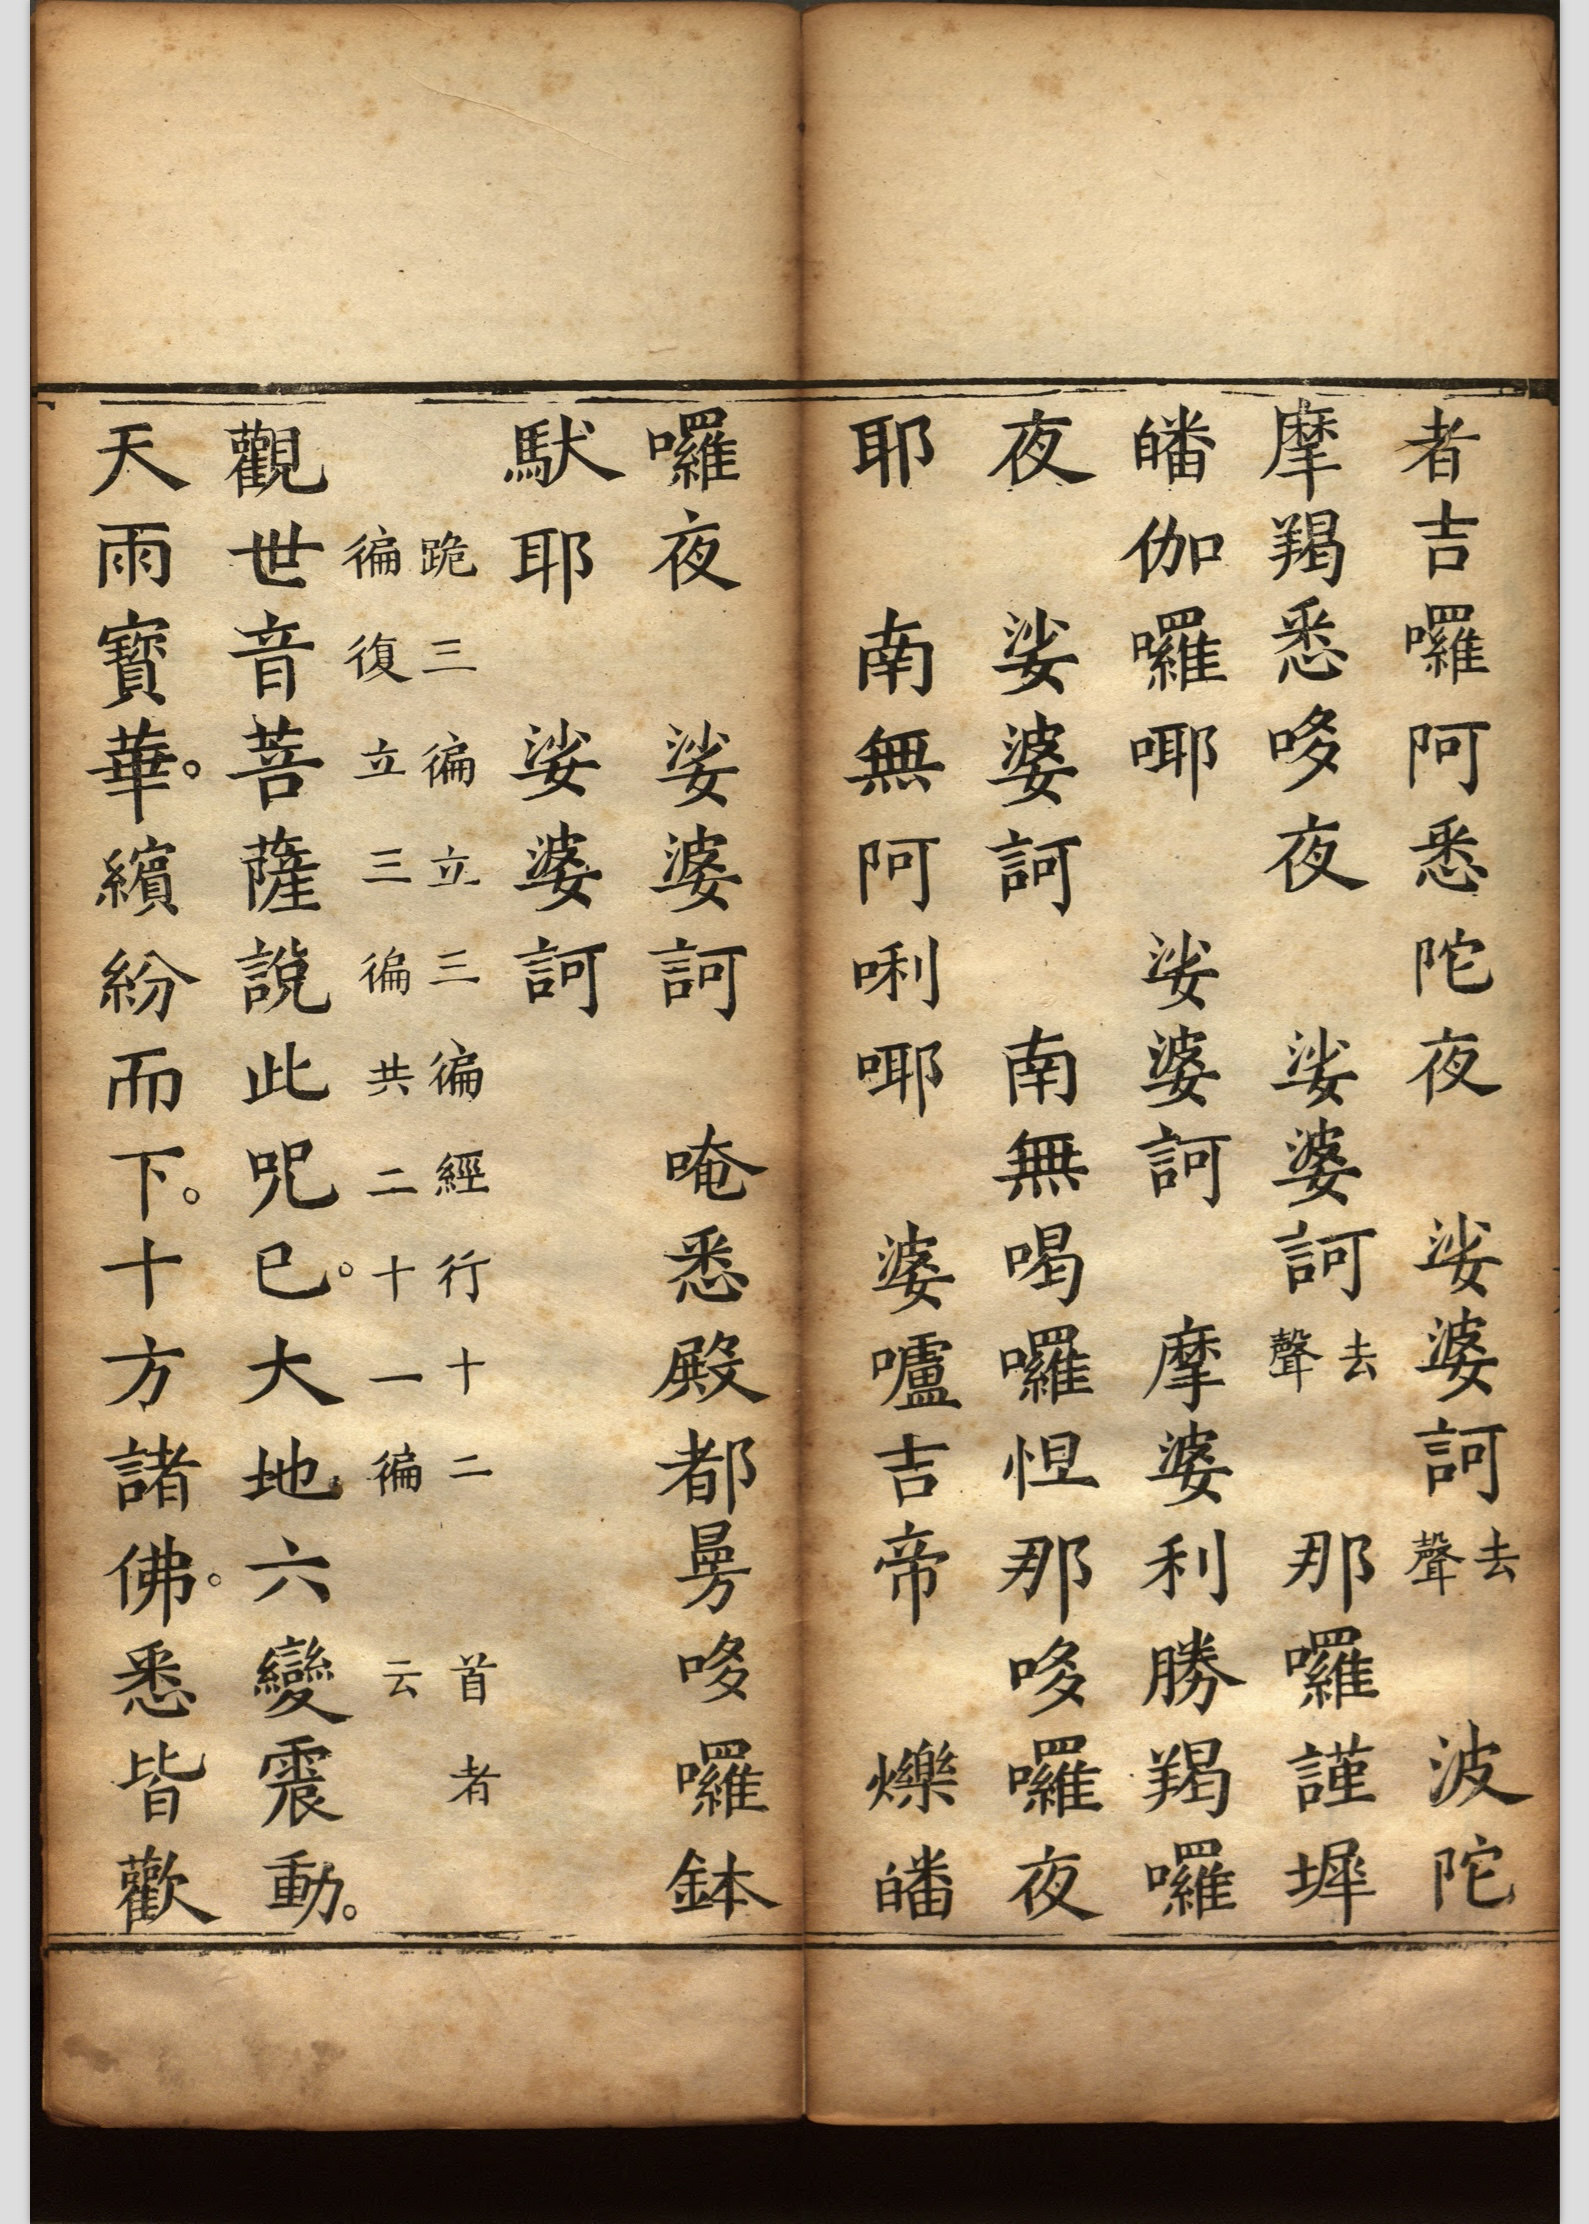 者吉囉阿悉陀夜 娑婆訶去聲 波陀
摩羯悉哆夜 娑婆訶去聲 那囉謹墀
皤伽囉㖿 娑婆訶 摩婆利勝羯囉
夜 娑婆訶 南無喝囉怛那哆囉夜
耶 南無阿唎㖿 婆嚧吉帝 爍皤
囉夜 娑婆訶 唵悉殿都曼哆囉鉢
馱耶 娑婆訶
跪三徧立三徧經行十二 首者
徧復立三徧共二十一徧 云
觀世音菩薩說此呪已。大地六變震動。
天雨寶華。繽紛而下。十方諸佛。悉皆歡